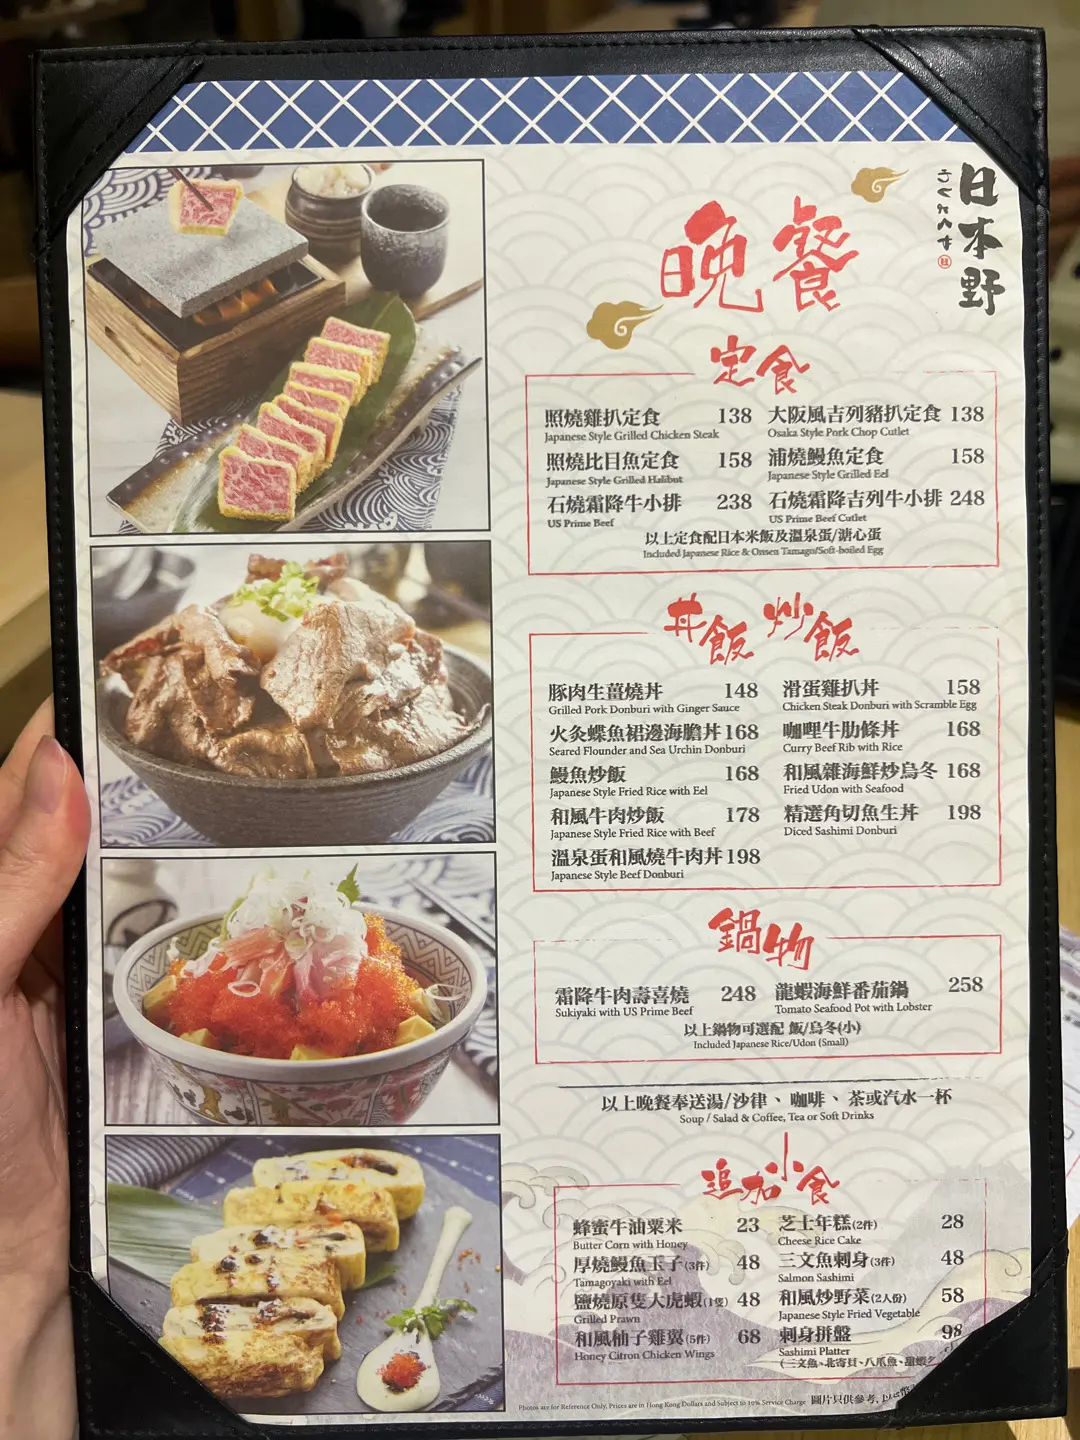 日本野
わしょくや
晚餐
定食
照燒雞扒定食 138
Japanese Style Grilled Chicken Steak
大阪風吉列豬扒定食 138
Osaka Style Pork Chop Cutlet
照燒比目魚定食 158
Japanese Style Grilled Halibut
浦燒鰻魚定食 158
Japanese Style Grilled Eel
石燒霜降牛小排 238
US Prime Beef
石燒霜降吉列牛小排 248
US Prime Beef Cutlet
以上定食配日本米飯及溫泉蛋/溏心蛋
Included Japanese Rice & Onsen Tamago/Soft-boiled Egg
丼飯 炒飯
豚肉生薑燒丼 148
Grilled Pork Donburi with Ginger Sauce
滑蛋雞扒丼 158
Chicken Steak Donburi with Scramble Egg
火灸蝶魚裙邊海膽丼 168
Seared Flounder and Sea Urchin Donburi
咖哩牛肋條丼 168
Curry Beef Rib with Rice
鰻魚炒飯 168
Japanese Style Fried Rice with Eel
和風雜海鮮炒烏冬 168
Fried Udon with Seafood
和風牛肉炒飯 178
Japanese Style Fried Rice with Beef
精選角切魚生丼 198
Diced Sashimi Donburi
溫泉蛋和風燒牛肉丼 198
Japanese Style Beef Donburi
鍋物
霜降牛肉壽喜燒 248
Sukiyaki with US Prime Beef
龍蝦海鮮番茄鍋 258
Tomato Seafood Pot with Lobster
以上鍋物可選配 飯/烏冬(小)
Included Japanese Rice/Udon (Small)
以上晚餐奉送湯/沙律、咖啡、茶或汽水一杯
Soup / Salad & Coffee, Tea or Soft Drinks
追加小食
蜂蜜牛油粟米 23
Butter Corn with Honey
芝士年糕(2件) 28
Cheese Rice Cake
厚燒鰻魚玉子(3件) 48
Tamagoyaki with Eel
三文魚刺身(3件) 48
Salmon Sashimi
鹽燒原隻大虎蝦(1隻) 48
Grilled Prawn
和風炒野菜(2人份) 58
Japanese Style Fried Vegetable
和風柚子雞翼(5件) 68
Honey Citron Chicken Wings
刺身拼盤 98
Sashimi Platter
(三文魚、北寄貝、八爪魚、甜蝦
Photos are for Reference Only, Prices are in Hong Kong Dollars and Subject to 10% Service Charge 圖片只供參考,